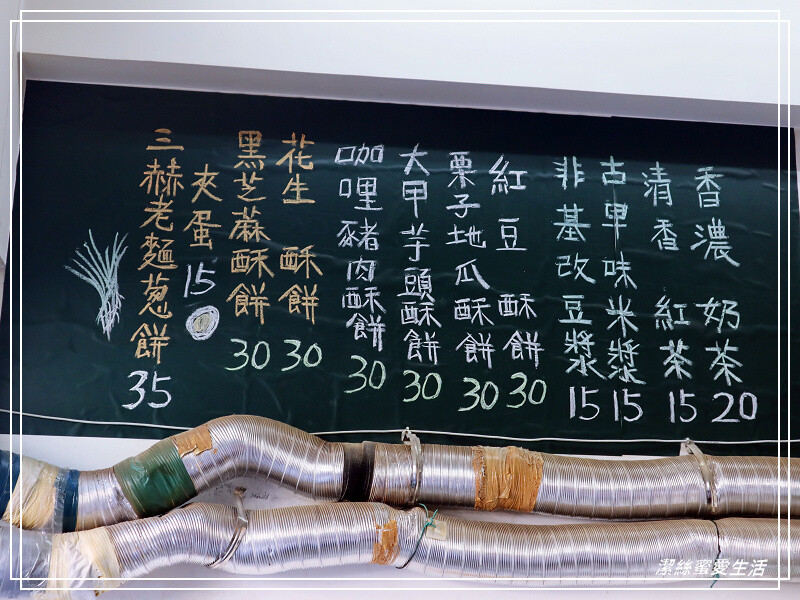 香濃 奶茶 20
清香 紅茶 15
古早味米漿 15
非基改豆漿 15
紅豆 酥餅 30
栗子地瓜酥餅 30
大甲芋頭酥餅 30
咖哩豬肉酥餅 30
花生 酥餅 30
黑芝蔴酥餅 30
夾蛋 15
三赫老麵蔥餅 35
潔絲蜜愛生活